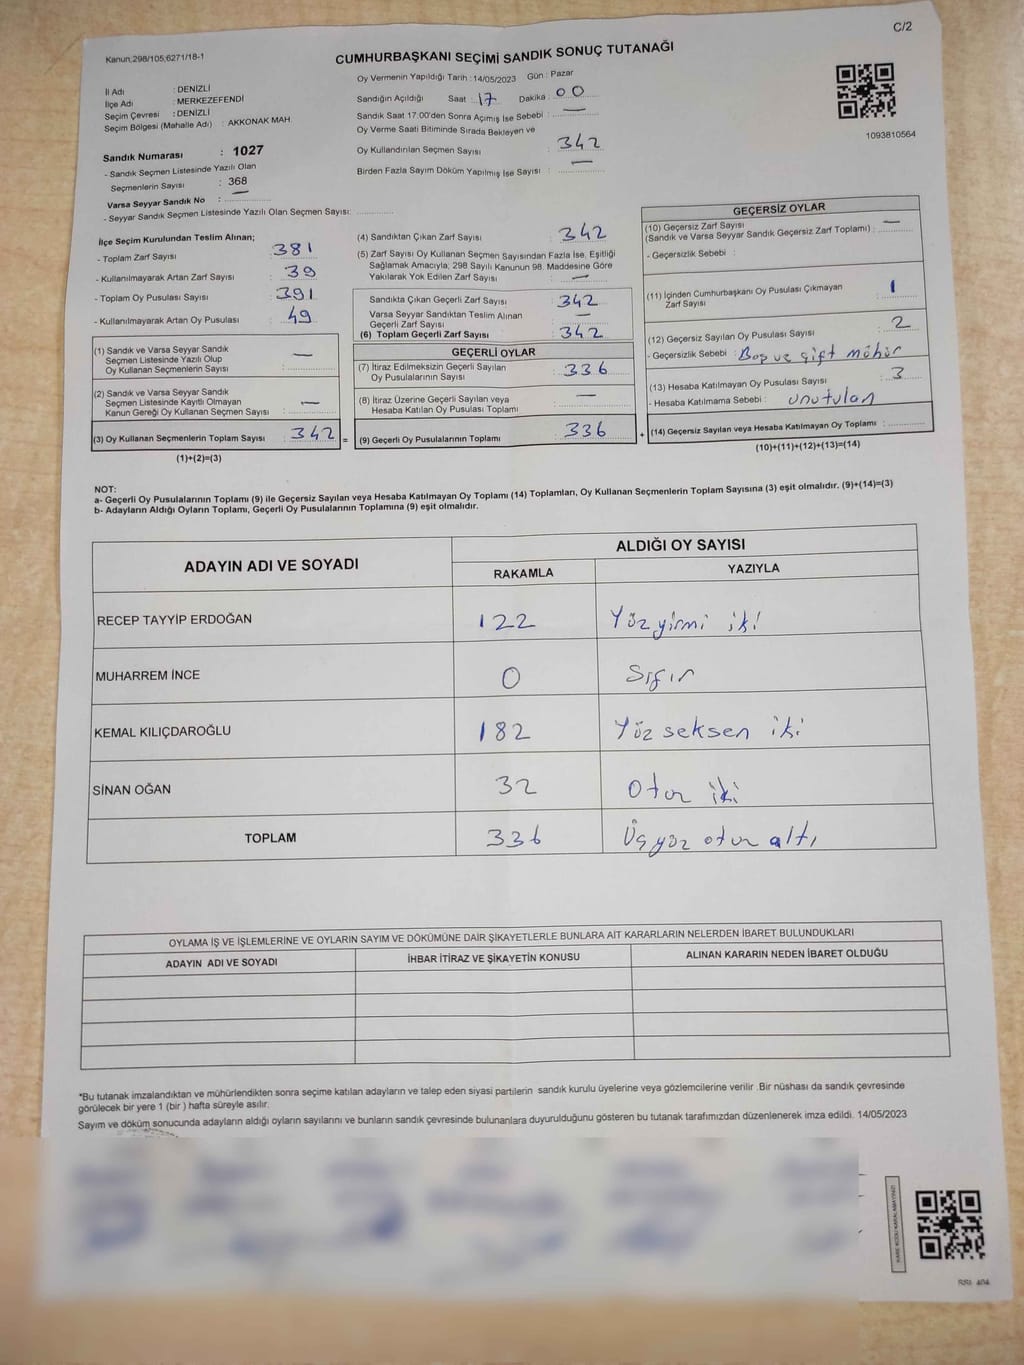 C/2
Kanun:298/105;6271/18-1
CUMHURBAŞKANI SEÇİMİ SANDIK SONUÇ TUTANAĞI
İl Adı : DENİZLİ
İlçe Adı : MERKEZEFENDİ
Seçim Çevresi : DENİZLİ
Seçim Bölgesi (Mahalle Adı) : AKKONAK MAH.
Sandık Numarası : 1027
- Sandık Seçmen Listesinde Yazılı Olan
Seçmenlerin Sayısı : 368
Varsa Seyyar Sandık No : —
- Seyyar Sandık Seçmen Listesinde Yazılı Olan Seçmen Sayısı:
Oy Vermenin Yapıldığı Tarih : 14/05/2023 Gün : Pazar
Sandığın Açıldığı Saat : 17 Dakika : 00
Sandık Saat 17:00'den Sonra Açımış İse Sebebi : —
Oy Verme Saati Bitiminde Sırada Bekleyen ve
Oy Kullandırılan Seçmen Sayısı : 342
Birden Fazla Sayım Döküm Yapılmış İse Sayısı : —
1093810564
İlçe Seçim Kurulundan Teslim Alınan;
- Toplam Zarf Sayısı : 381
- Kullanılmayarak Artan Zarf Sayısı : 39
- Toplam Oy Pusulası Sayısı : 391
- Kullanılmayarak Artan Oy Pusulası : 49
(1) Sandık ve Varsa Seyyar Sandık
Seçmen Listesinde Yazılı Olup
Oy Kullanan Seçmenlerin Sayısı : —
(2) Sandık ve Varsa Seyyar Sandık
Seçmen Listesinde Kayıtlı Olmayan
Kanun Gereği Oy Kullanan Seçmen Sayısı : —
(3) Oy Kullanan Seçmenlerin Toplam Sayısı : 342 =
(1)+(2)=(3)
(4) Sandıktan Çıkan Zarf Sayısı : 342
(5) Zarf Sayısı Oy Kullanan Seçmen Sayısından Fazla İse, Eşitliği
Sağlamak Amacıyla, 298 Sayılı Kanunun 98. Maddesine Göre
Yakılarak Yok Edilen Zarf Sayısı : —
Sandıkta Çıkan Geçerli Zarf Sayısı : 342
Varsa Seyyar Sandıktan Teslim Alınan
Geçerli Zarf Sayısı : —
(6) Toplam Geçerli Zarf Sayısı : 342
GEÇERLİ OYLAR
(7) İtiraz Edilmeksizin Geçerli Sayılan
Oy Pusulalarının Sayısı : 336
(8) İtiraz Üzerine Geçerli Sayılan veya
Hesaba Katılan Oy Pusulası Toplamı : —
(9) Geçerli Oy Pusulalarının Toplamı : 336 +
GEÇERSİZ OYLAR
(10) Geçersiz Zarf Sayısı
(Sandık ve Varsa Seyyar Sandık Geçersiz Zarf Toplamı) : —
- Geçersizlik Sebebi :
(11) İçinden Cumhurbaşkanı Oy Pusulası Çıkmayan
Zarf Sayısı : 1
(12) Geçersiz Sayılan Oy Pusulası Sayısı : 2
- Geçersizlik Sebebi : Boş ve çift mühür
(13) Hesaba Katılmayan Oy Pusulası Sayısı : 3
- Hesaba Katılmama Sebebi : unutulan
(14) Geçersiz Sayılan veya Hesaba Katılmayan Oy Toplamı :
(10)+(11)+(12)+(13)=(14)
NOT:
a- Geçerli Oy Pusulalarının Toplamı (9) ile Geçersiz Sayılan veya Hesaba Katılmayan Oy Toplamı (14) Toplamları, Oy Kullanan Seçmenlerin Toplam Sayısına (3) eşit olmalıdır. (9)+(14)=(3)
b- Adayların Aldığı Oyların Toplamı, Geçerli Oy Pusulalarının Toplamına (9) eşit olmalıdır.
ADAYIN ADI VE SOYADI ALDIĞI OY SAYISI
RAKAMLA YAZIYLA
RECEP TAYYİP ERDOĞAN 122 Yüzyirmi iki
MUHARREM İNCE 0 Sıfır
KEMAL KILIÇDAROĞLU 182 Yüz seksen iki
SİNAN OĞAN 32 Otuz iki
TOPLAM 336 Üçyüz otuz altı
OYLAMA İŞ VE İŞLEMLERİNE VE OYLARIN SAYIM VE DÖKÜMÜNE DAİR ŞİKAYETLERLE BUNLARA AİT KARARLARIN NELERDEN İBARET BULUNDUKLARI
ADAYIN ADI VE SOYADI İHBAR İTİRAZ VE ŞİKAYETİN KONUSU ALINAN KARARIN NEDEN İBARET OLDUĞU
*Bu tutanak imzalandıktan ve mühürlendikten sonra seçime katılan adayların ve talep eden siyasi partilerin sandık kurulu üyelerine veya gözlemcilerine verilir .Bir nüshası da sandık çevresinde
görülecek bir yere 1 (bir ) hafta süreyle asılır.
Sayım ve döküm sonucunda adayların aldığı oyların sayılarını ve bunların sandık çevresinde bulunanlara duyurulduğunu gösteren bu tutanak tarafımızdan düzenlenerek imza edildi. 14/05/2023